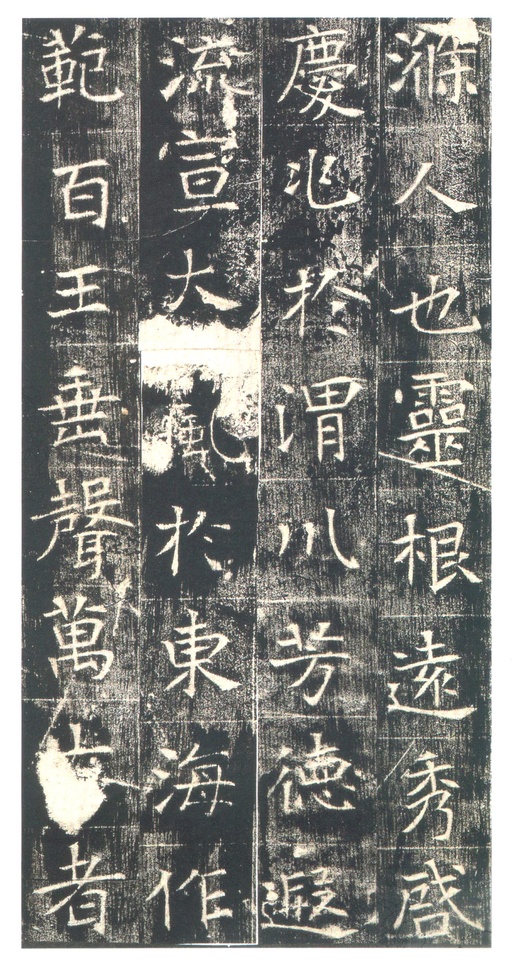 滌人也靈根遠秀啓
慶兆於渭川芳德遐
流宣大風於東海作
範百王垂聲萬者